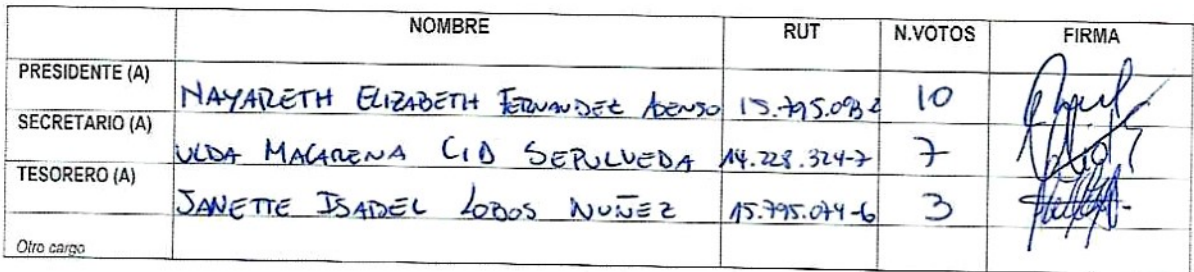 NOMBRE RUT N.VOTOS FIRMA
PRESIDENTE (A) NAYARETH ELIZABETH FERNANDEZ 10
SECRETARIO (A) ULDA MACARENA CID SEPULVEDA 14.228.324-7 7
TESORERO (A) JANETTE ISABEL LOBOS NUÑEZ 15.795.074-6 3
Otro cargo